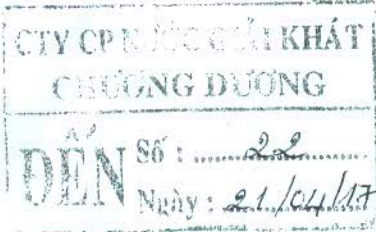 CTY CP NƯỚC GIẢI KHÁT
CHƯƠNG DƯƠNG
ĐẾN Số : 22
Ngày : 21/04/17